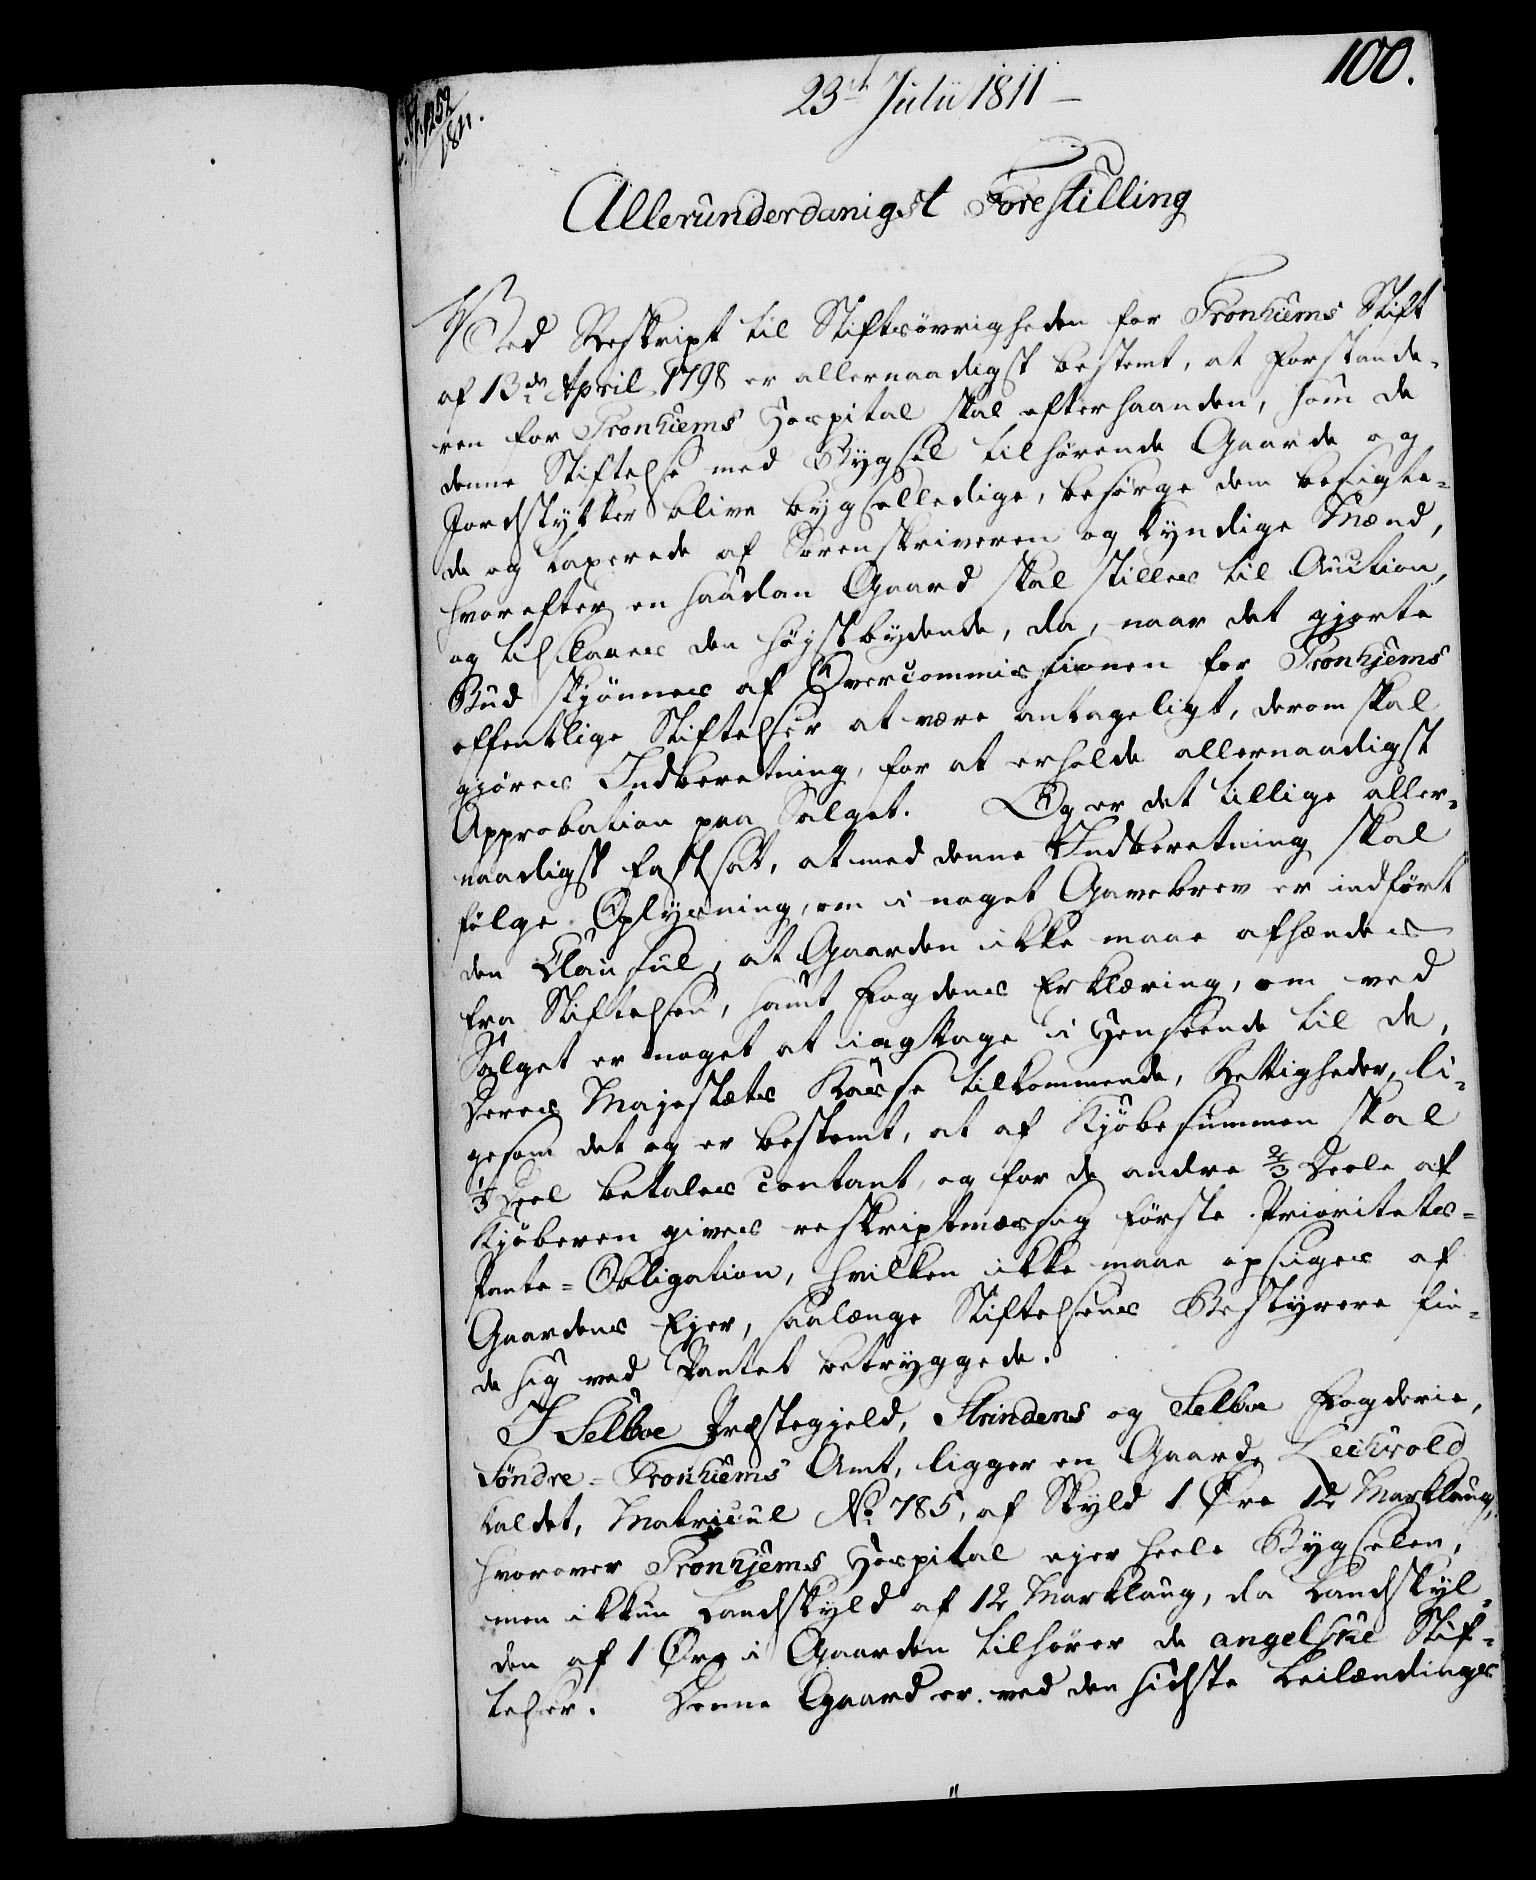 100.
1252
1811.
23d Julii 1811
Allerunderdanigst Forestilling
Ved Reskript til Stiftsövrigheden for Tronhiems Stift
af 13de April 1798 er allernaadigst bestemt, at Forstande-
ren for Tronhiems Hospital skal efterhaanden, som de
denne Stiftelse med Bygsel tilhörende Gaarde og
Jordstykker blive bygselledige, besörge dem besigte-
de og taxerede af Sorenskriveren og kyndige Mænd,
hvorefter en saadan Gaard skal stilles til Auction,
og tilslaaes den höystbydende, da, naar det gjorte
Bud skjönnes af Overcommissionen for Tronhjems
offentlige Stiftelser at være antageligt, derom skal
gjöres Indberetning, for at erholde allernaadigst
Approbation paa Salget. Og er det tillige aller-
naadigst fastsat, at med denne Indberetning skal
fölge Oplysning, om i noget Gavebrev er indfört
den Clausul, at Gaarden ikke maae afhændes
fra Stiftelsen, samt Fogdens Erklæring, om ved
Salget er noget at iagttage i Henseende til de,
Deres Majestæts Kasse tilkommende, Rettigheder, li-
gesom det og er bestemt, at af Kjöbesummen skal
1/3 Deel betales contant, og for de andre 2/3 Deele af
Kjöberen gives reskriptmæssig förste Prioritets-
Pante-Obligation, hvilken ikke maae opsiges af
Gaardens Ejer, saalænge Stiftelsens Bestyrere fin-
de sig ved Pantet betryggede.
I Selboe Præstegjeld, Strindens og Selboe Fogderie,
Söndre-Tronhiems Amt, ligger en Gaard, Leikvold
kaldet, Matricul No 785, af Skyld 1 Øre 12 Marklaug,
hvorover Tronhjems Hospital ejer heele Bygselen,
men ikkun Landskyld af 12 Marklaug, da Landskyl-
den af 1 Øre i Gaarden tilhörer de angelske Stif-
telser. Denne Gaard er ved den sidste Leilændings